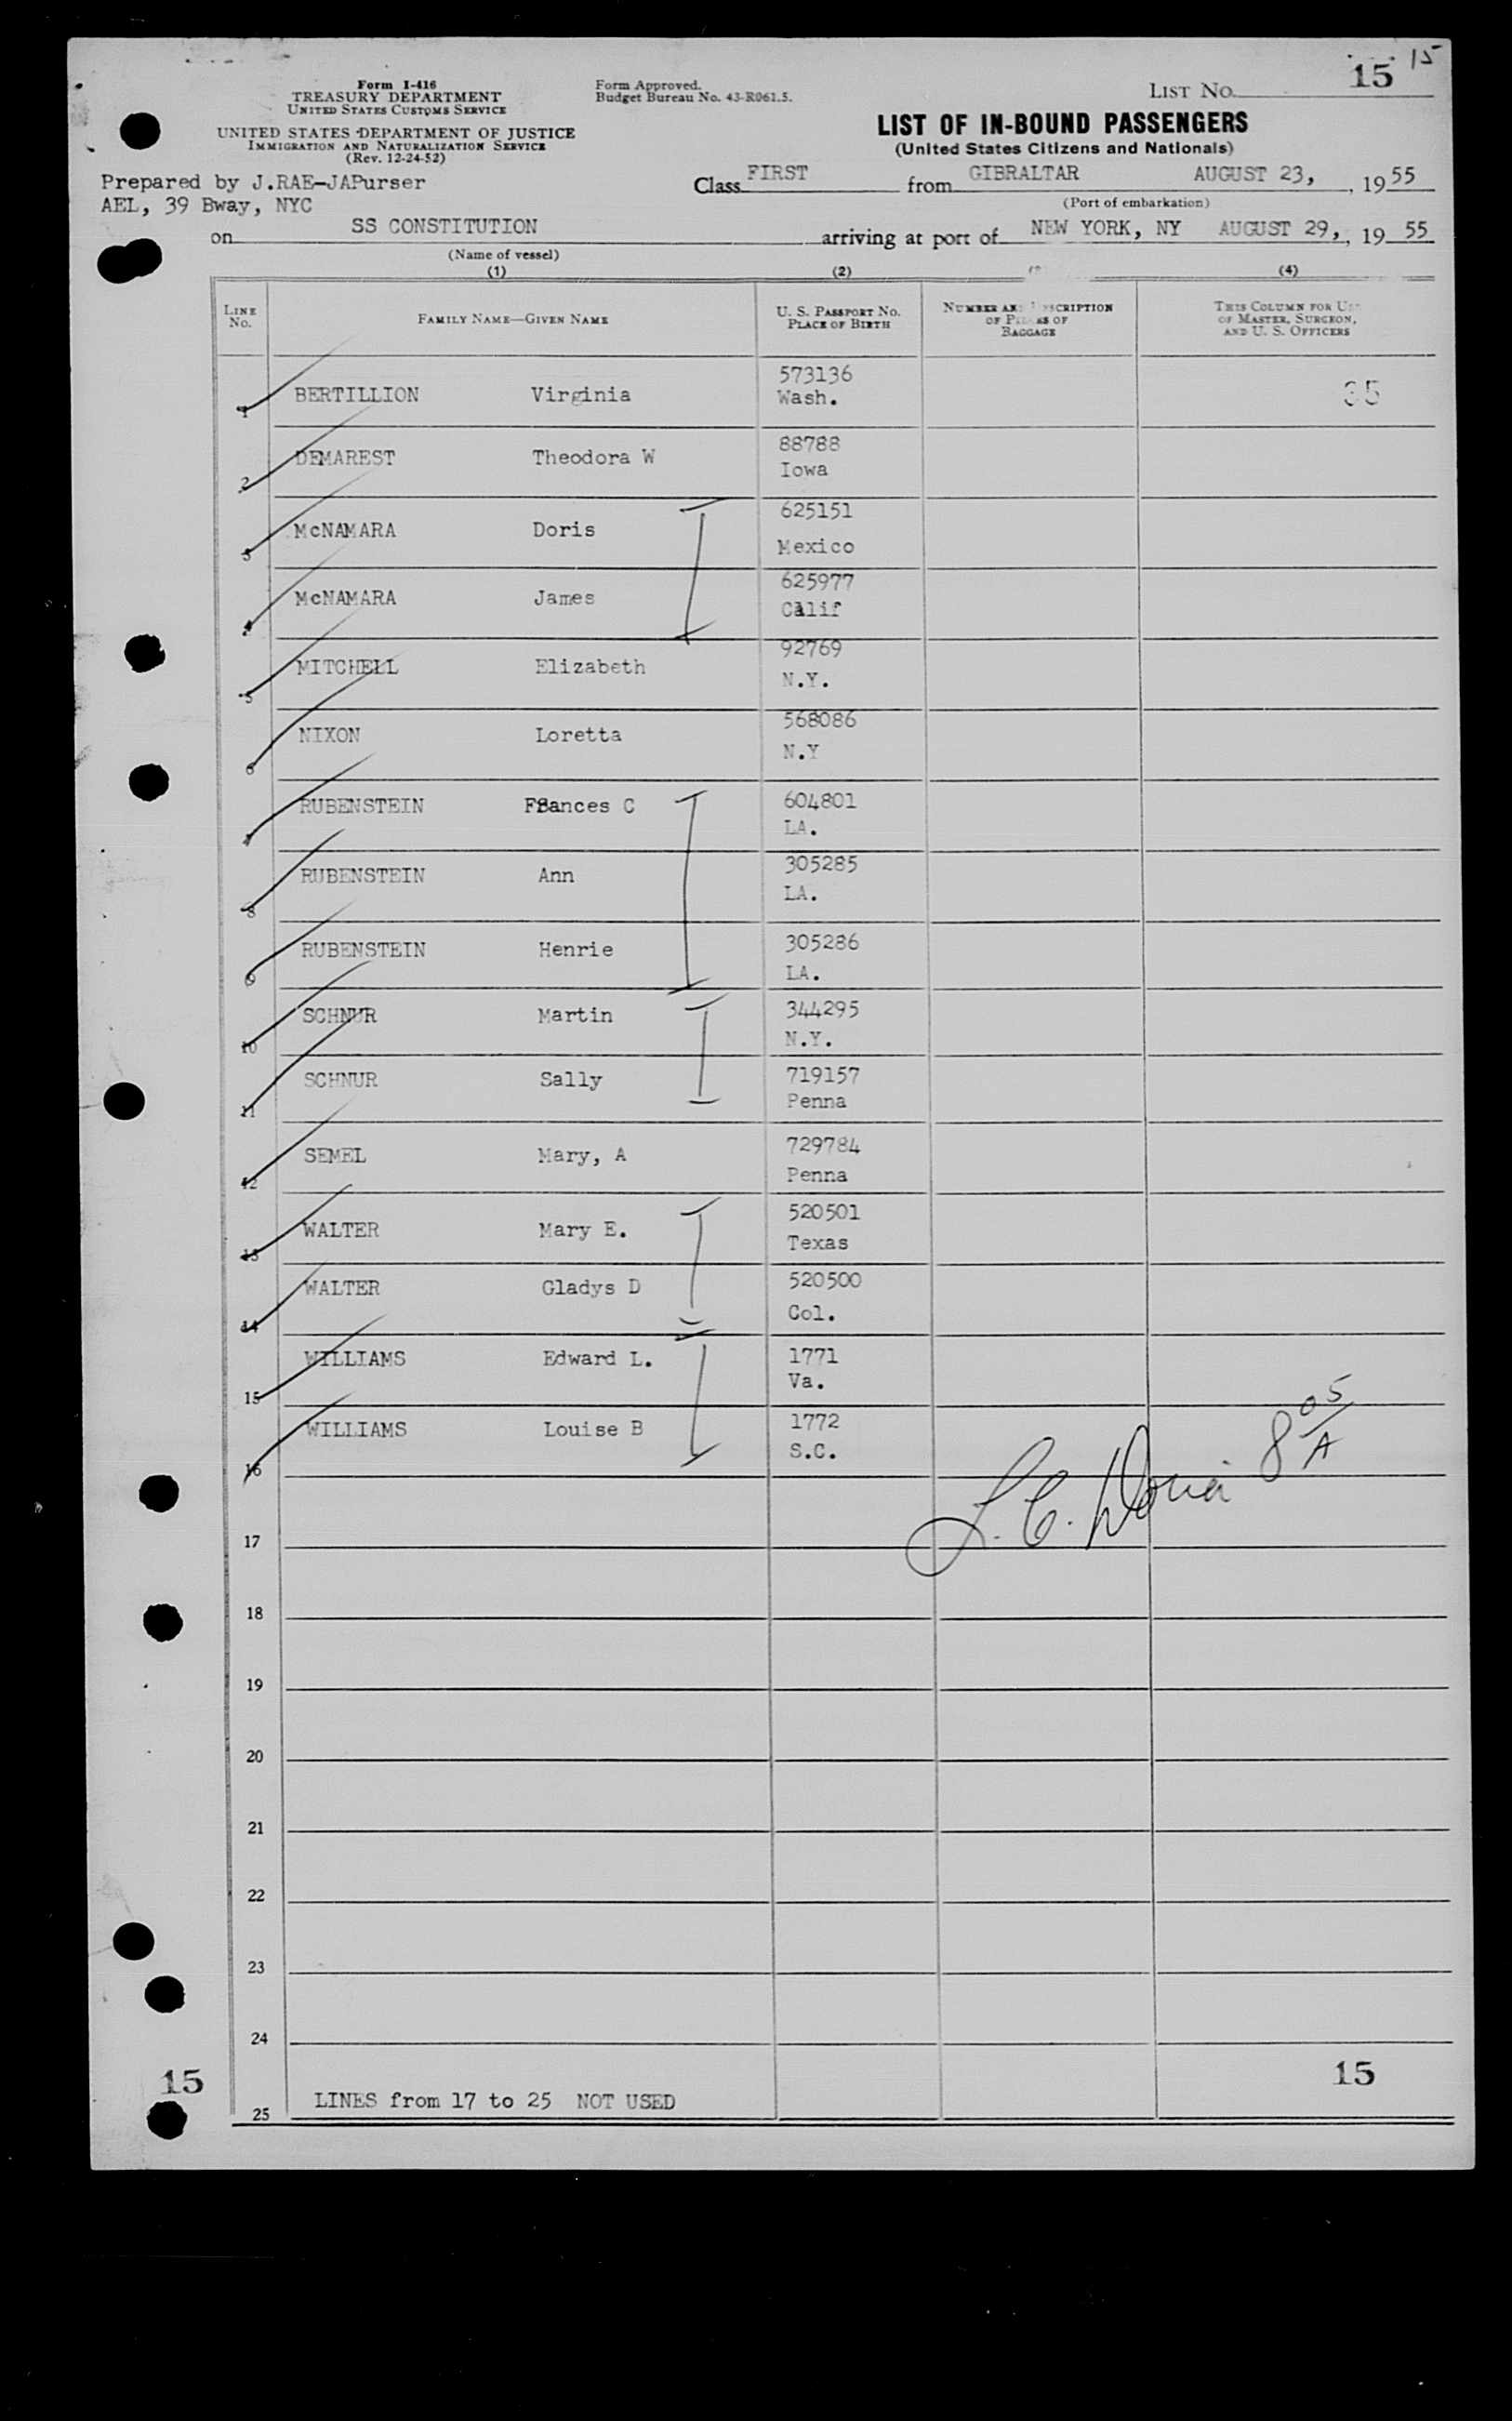 15
15
Form I-416
TREASURY DEPARTMENT
UNITED STATES CUSTOMS SERVICE
UNITED STATES DEPARTMENT OF JUSTICE
IMMIGRATION AND NATURALIZATION SERVICE
(Rev. 12-24-52)
Form Approved.
Budget Bureau No. 43-R061.5.
LIST NO.
LIST OF IN-BOUND PASSENGERS
(United States Citizens and Nationals)
Prepared by J.RAE-JAPurser
AEL, 39 Bway, NYC
Class FIRST from GIBRALTAR AUGUST 23, , 1955
(Port of embarkation)
on SS CONSTITUTION arriving at port of NEW YORK, NY AUGUST 29, , 19 55
(Name of vessel)
(1) (2) (4)
LINE No. FAMILY NAME—GIVEN NAME U. S. PASSPORT NO. PLACE OF BIRTH NUMBER AND DESCRIPTION OF PIECES OF BAGGAGE THIS COLUMN FOR USE OF MASTER, SURGEON, AND U. S. OFFICERS
1 BERTILLION Virginia 573136 Wash. 35
2 DEMAREST Theodora W 88788 Iowa
3 McNAMARA Doris 625151 Mexico
4 McNAMARA James 625977 Calif
5 MITCHELL Elizabeth 92769 N.Y.
6 NIXON Loretta 568086 N.Y
7 RUBENSTEIN Frances C 604801 LA.
8 RUBENSTEIN Ann 305285 LA.
9 RUBENSTEIN Henrie 305286 LA.
10 SCHNUR Martin 344295 N.Y.
11 SCHNUR Sally 719157 Penna
12 SEMEL Mary, A 729784 Penna
13 WALTER Mary E. 520501 Texas
14 WALTER Gladys D 520500 Col.
15 WILLIAMS Edward L. 1771 Va.
16 WILLIAMS Louise B 1772 S.C.
8 05/A
17
18
19
20
21
22
23
24
15
15
25 LINES from 17 to 25 NOT USED